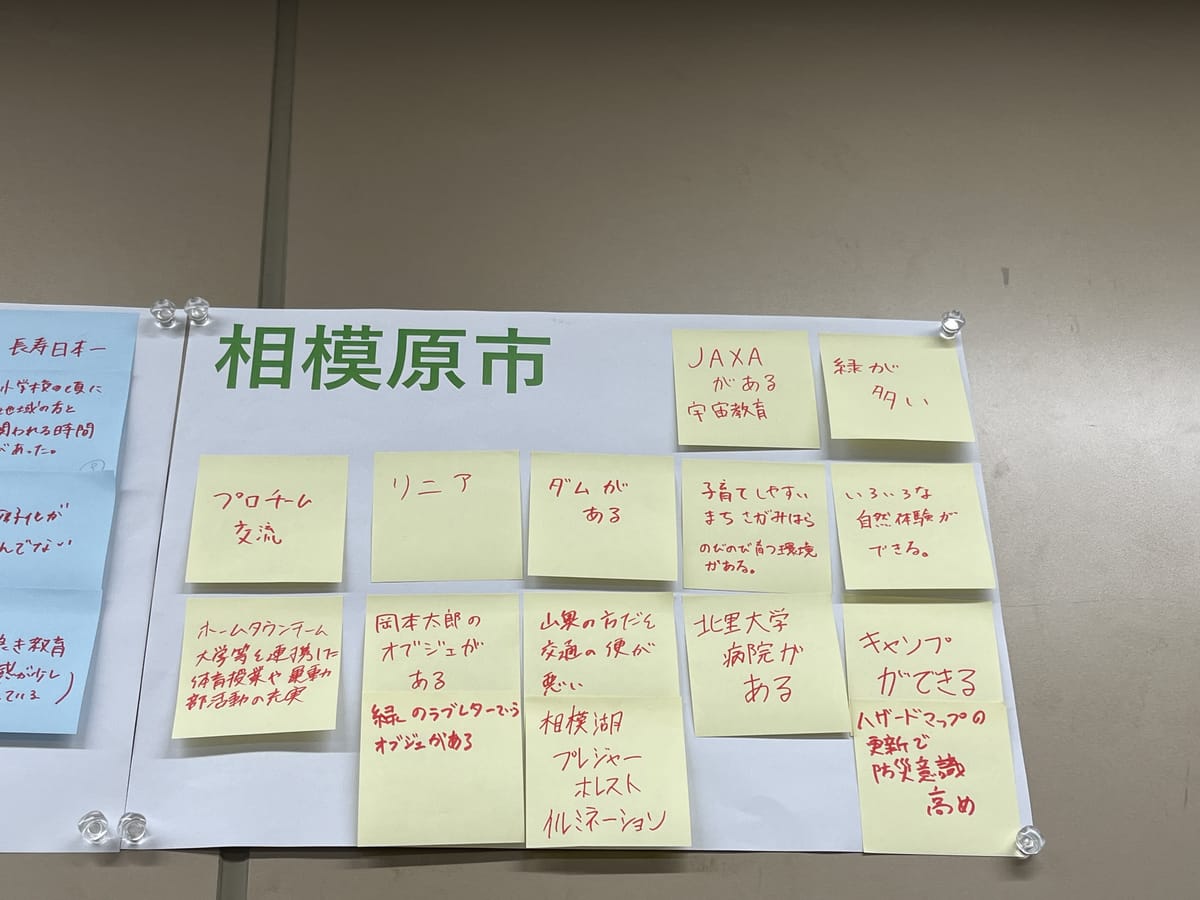 長寿日本一
小学校の頃に
地域の方と
関われる時間
があった。
んでない
き教育
感が少し
相模原市
JAXA
がある
宇宙教育
緑が
多い
プロチーム
交流
リニア
ダムが
ある
子育てしやすい
まち さがみはら
のびのび育つ環境
がある。
いろいろな
自然体験が
できる。
ホームタウンチーム
大学等と連携した
体育授業や
部活動の充実
岡本太郎の
オブジェが
ある
緑のラブレターていう
オブジェがある
山奥の方だと
交通の便が
悪い
相模湖
プレジャー
ホレスト
イルミネーション
北里大学
病院が
ある
キャンプ
ができる
ハザードマップの
更新で
防災意識
高め